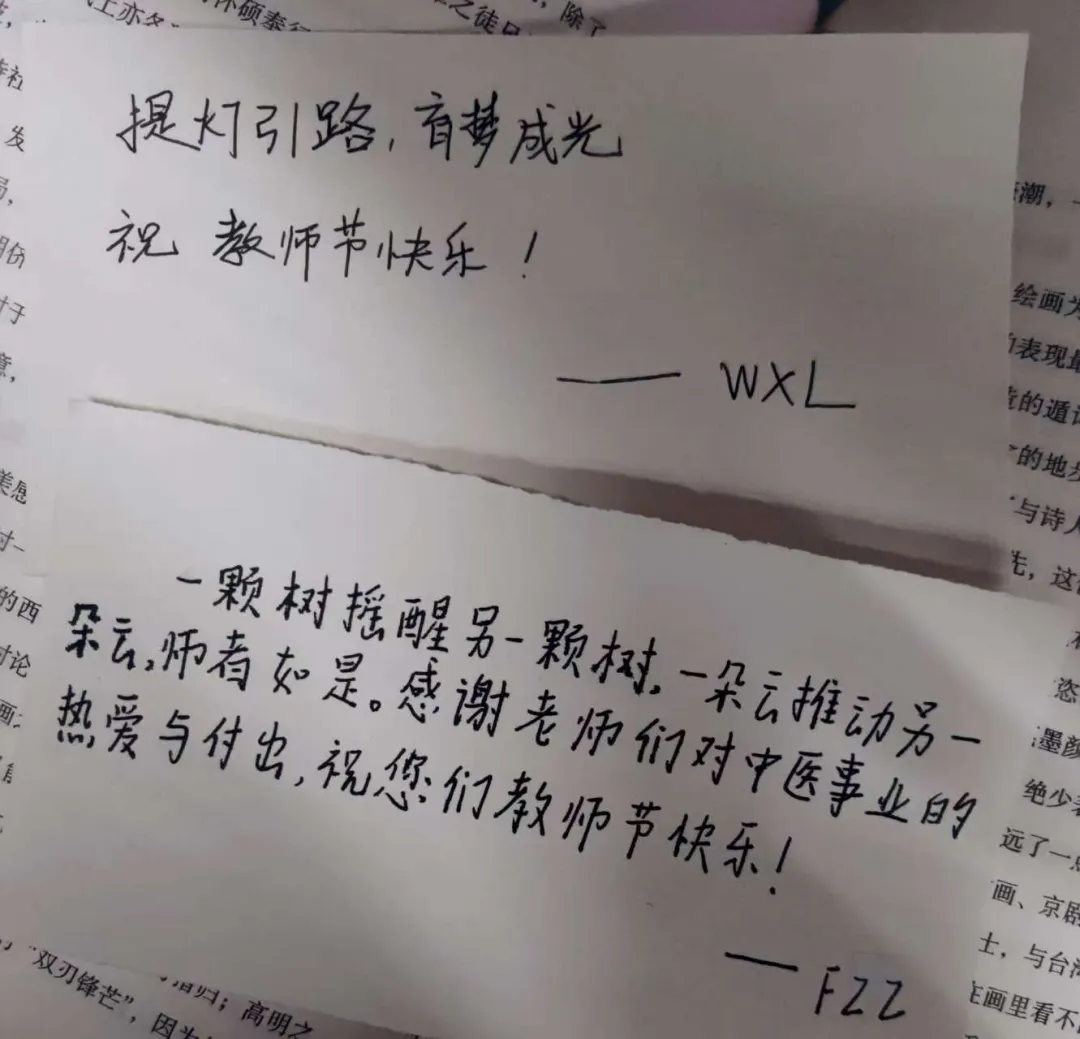 之徒
除了
提灯引路,育梦成光
祝 教师节快乐!
—— WXL
一颗树摇醒另一颗树,一朵云推动另一
朵云,师者如是。感谢老师们对中医事业的
热爱与付出,祝您们教师节快乐!
—— FZZ
发
对于
意,
美感
的西
讨论
潮,一
绘画为
表现最
的遁
的地步
与诗人
先,这
恣
墨颜
绝少
远了一点
画、京剧
士,与台
在画里看不
“双刃锋芒”,因为
;高明之